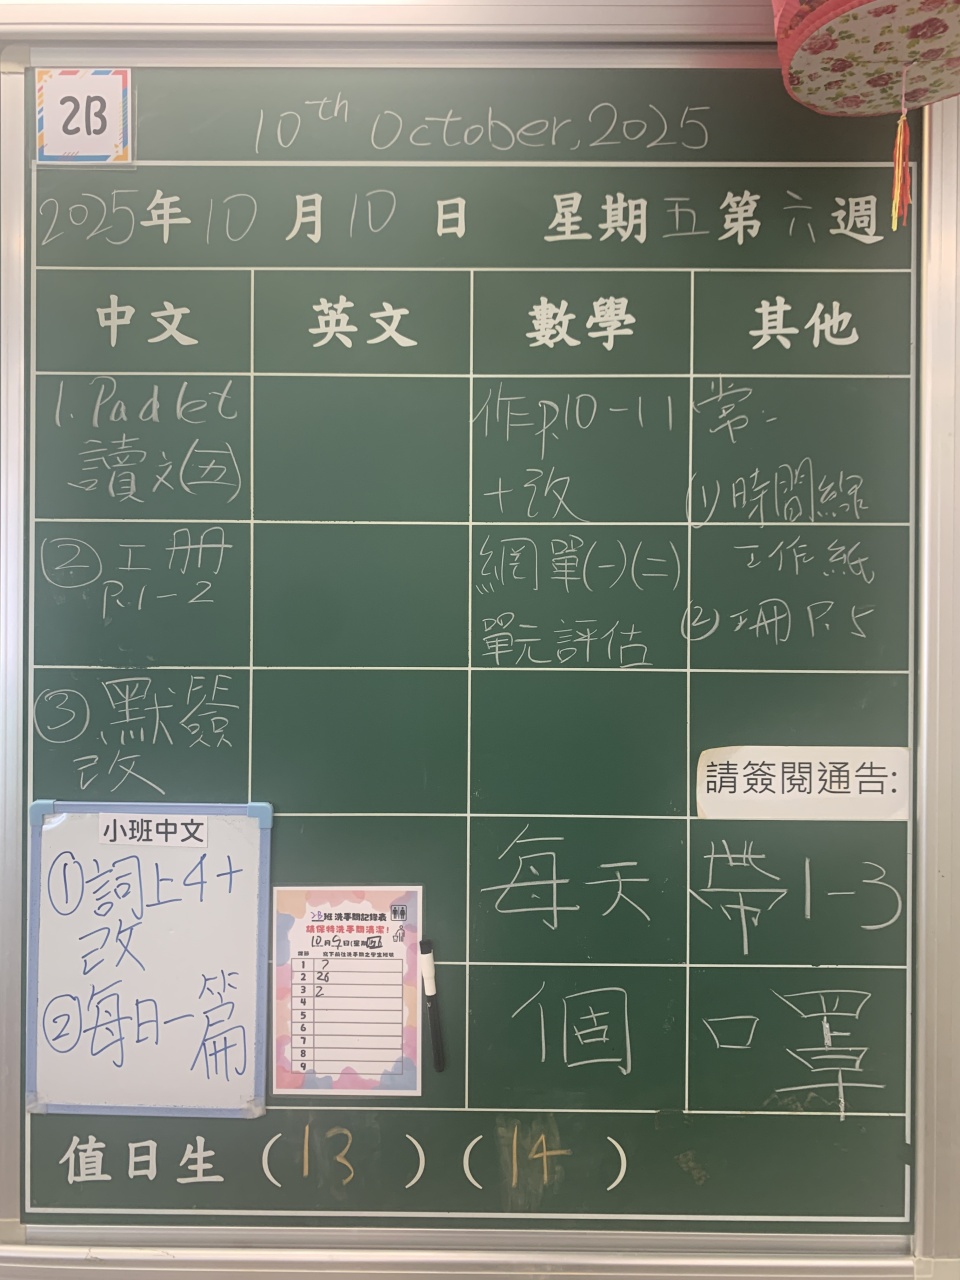 2B
10th October, 2025
2025年10月10日 星期五第六週
中文 英文 數學 其他
1. Padlet
讀文(五)
② 工册
P.1-2
③ 默簽
改
作p.10-11
+改
網單(一)(二)
單元評估
常:
(1) 時間線
工作紙
(2) 工冊 P.5
請簽閱通告:
每天帶1-3
個口罩
小班中文
①詞上4+
改
②每日一篇
2B班洗手間記錄表
請保持洗手間清潔!
10月9日(星期四)
1 7
2 26
3 2
4
5
6
7
8
9
值日生 (13) (14)